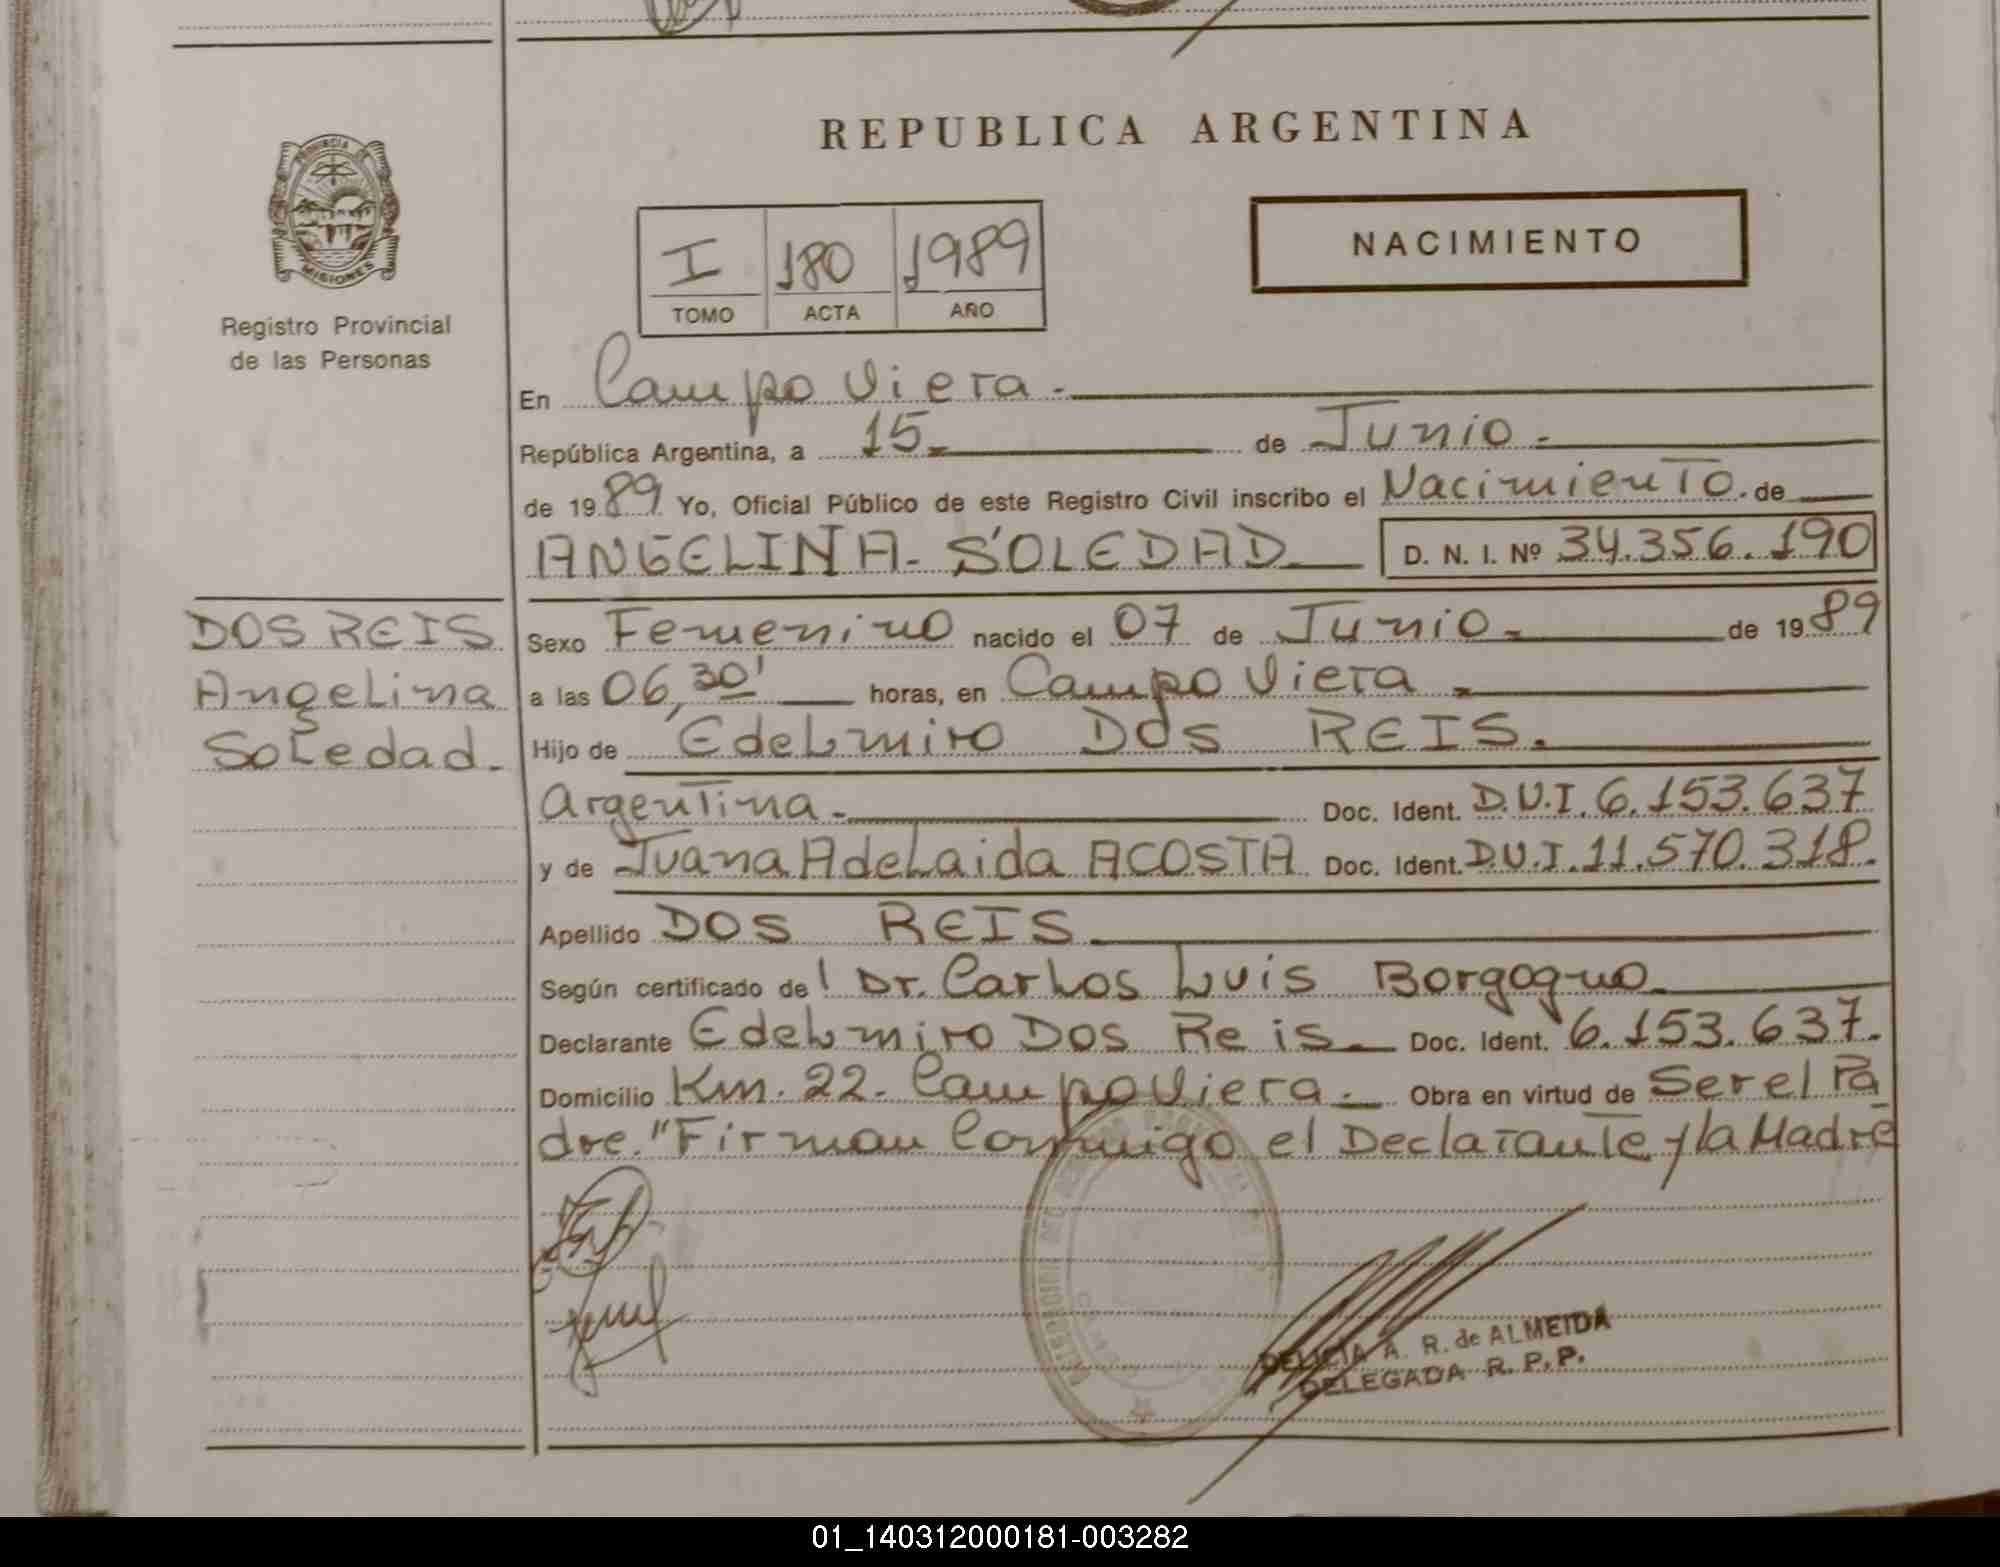 REPUBLICA ARGENTINA
PROVINCIA DE
MISIONES
Registro Provincial
de las Personas
I 180 1989
TOMO ACTA AÑO
NACIMIENTO
En Campo Viera.-
República Argentina, a 15 de Junio.-
de 1989 Yo, Oficial Público de este Registro Civil inscribo el Nacimiento. de
ANGELINA- SOLEDAD D. N. I. Nº 34.356.190
DOS REIS
Angelina
Soledad.-
Sexo Femenino nacido el 07 de Junio.- de 1989
a las 06,30' horas, en Campo Viera
Hijo de Edelmiro Dos REIS.
Argentina.- Doc. Ident. D.U.I. 6.153.637
y de Juana Adelaida ACOSTA Doc. Ident. D.U.I. 11.570.318.
Apellido DOS REIS
Según certificado del Dr. Carlos Luis Borgogno
Declarante Edelmiro Dos Reis.- Doc. Ident. 6.153.637.
Domicilio Km. 22- Campo Viera.- Obra en virtud de Ser el Pa
dre." Firman Conmigo el Declarante y la Madre
DELICIA A. R. de ALMEIDA
DELEGADA R. P. P.
01_140312000181-003282